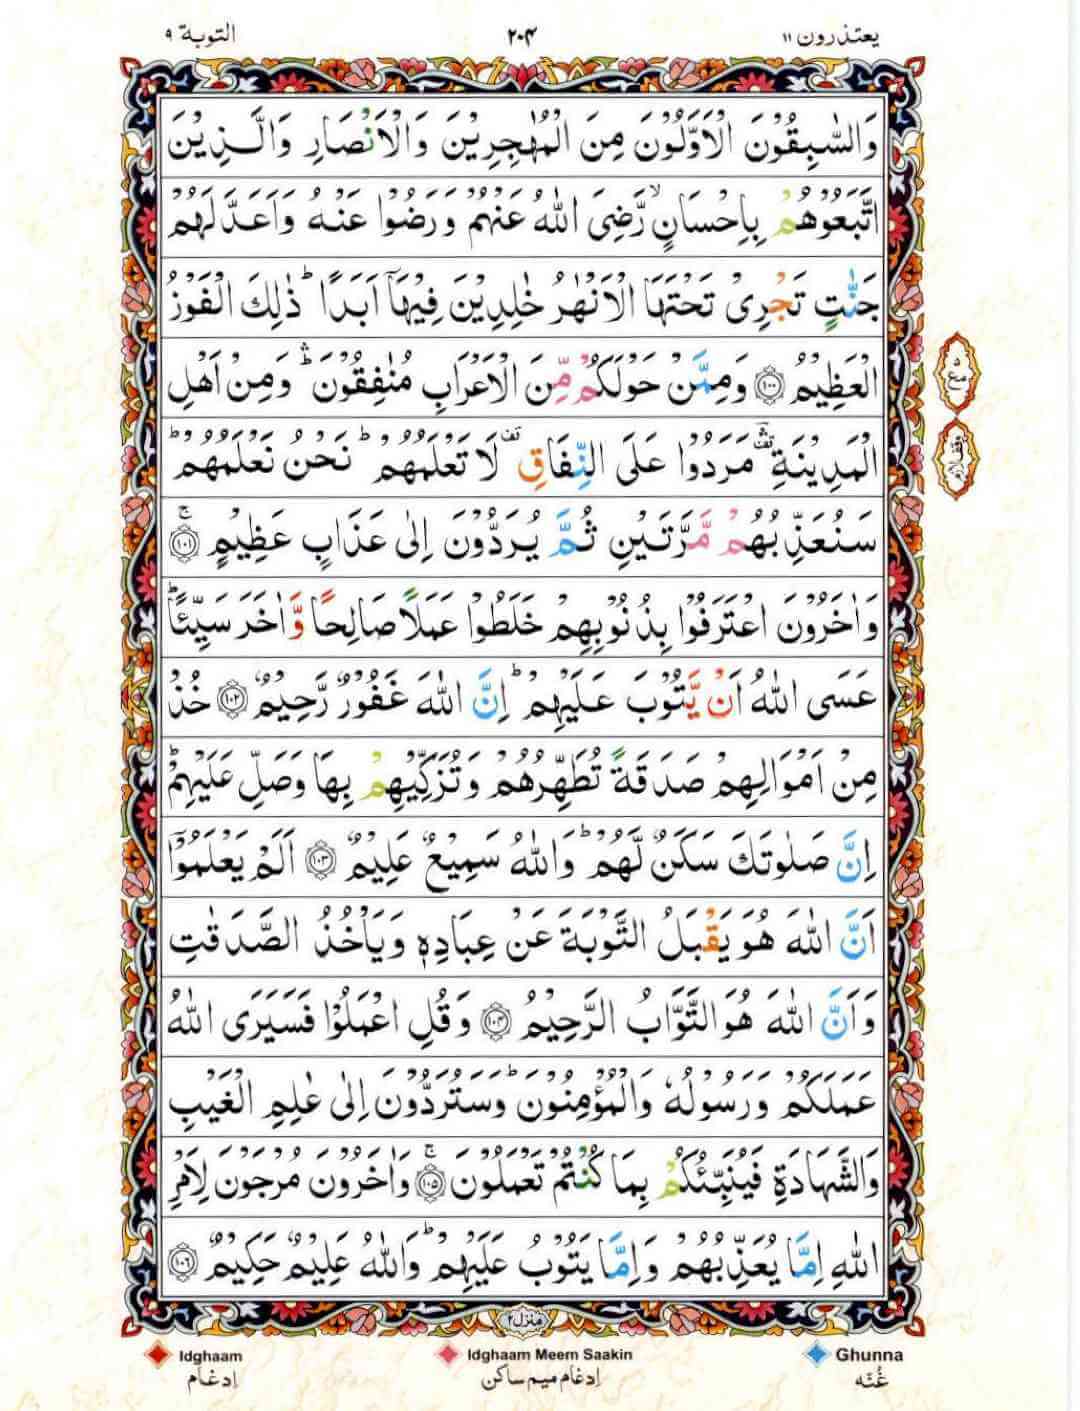 یعتذرون ۱۱ ۲۰۴ التوبة ۹
وَالسّٰبِقُوْنَ الْاَوَّلُوْنَ مِنَ الْمُهٰجِرِيْنَ وَالْاَنْصَارِ وَالَّذِيْنَ
اتَّبَعُوْهُمْ بِاِحْسَانٍ ۙ رَّضِىَ اللّٰهُ عَنْهُمْ وَرَضُوْا عَنْهُ وَاَعَدَّ لَهُمْ
جَنّٰتٍ تَجْرِىْ تَحْتَهَا الْاَنْهٰرُ خٰلِدِيْنَ فِيْهَاۤ اَبَدًا ؕ ذٰلِكَ الْفَوْزُ
الْعَظِيْمُ ۝۱۰۰ وَمِمَّنْ حَوْلَكُمْ مِّنَ الْاَعْرَابِ مُنٰفِقُوْنَ ۛؕ وَمِنْ اَهْلِ
الْمَدِيْنَةِ ۛؔ مَرَدُوْا عَلَى النِّفَاقِ ۙ لَا تَعْلَمُهُمْ ؕ نَحْنُ نَعْلَمُهُمْ ؕ
سَنُعَذِّبُهُمْ مَّرَّتَيْنِ ثُمَّ يُرَدُّوْنَ اِلٰى عَذَابٍ عَظِيْمٍ ۚ ۝۱۰۱
وَاٰخَرُوْنَ اعْتَرَفُوْا بِذُنُوْبِهِمْ خَلَطُوْا عَمَلًا صَالِحًا وَّاٰخَرَ سَيِّئًا ؕ
عَسَى اللّٰهُ اَنْ يَّتُوْبَ عَلَيْهِمْ ؕ اِنَّ اللّٰهَ غَفُوْرٌ رَّحِيْمٌ ۝۱۰۲ خُذْ
مِنْ اَمْوَالِهِمْ صَدَقَةً تُطَهِّرُهُمْ وَتُزَكِّيْهِمْ بِهَا وَصَلِّ عَلَيْهِمْ ؕ
اِنَّ صَلٰوتَكَ سَكَنٌ لَّهُمْ ؕ وَاللّٰهُ سَمِيْعٌ عَلِيْمٌ ۝۱۰۳ اَلَمْ يَعْلَمُوْۤا
اَنَّ اللّٰهَ هُوَ يَقْبَلُ التَّوْبَةَ عَنْ عِبَادِهٖ وَيَاْخُذُ الصَّدَقٰتِ
وَاَنَّ اللّٰهَ هُوَ التَّوَّابُ الرَّحِيْمُ ۝۱۰۴ وَقُلِ اعْمَلُوْا فَسَيَرَى اللّٰهُ
عَمَلَكُمْ وَرَسُوْلُهٗ وَالْمُؤْمِنُوْنَ ؕ وَسَتُرَدُّوْنَ اِلٰى عٰلِمِ الْغَيْبِ
وَالشَّهَادَةِ فَيُنَبِّئُكُمْ بِمَا كُنْتُمْ تَعْمَلُوْنَ ۚ ۝۱۰۵ وَاٰخَرُوْنَ مُرْجَوْنَ لِاَمْرِ
اللّٰهِ اِمَّا يُعَذِّبُهُمْ وَاِمَّا يَتُوْبُ عَلَيْهِمْ ؕ وَاللّٰهُ عَلِيْمٌ حَكِيْمٌ ۝۱۰۶
منزل ۲
Idghaam Idghaam Meem Saakin Ghunna
اِدغام اِدغام میم ساکن غُنّه